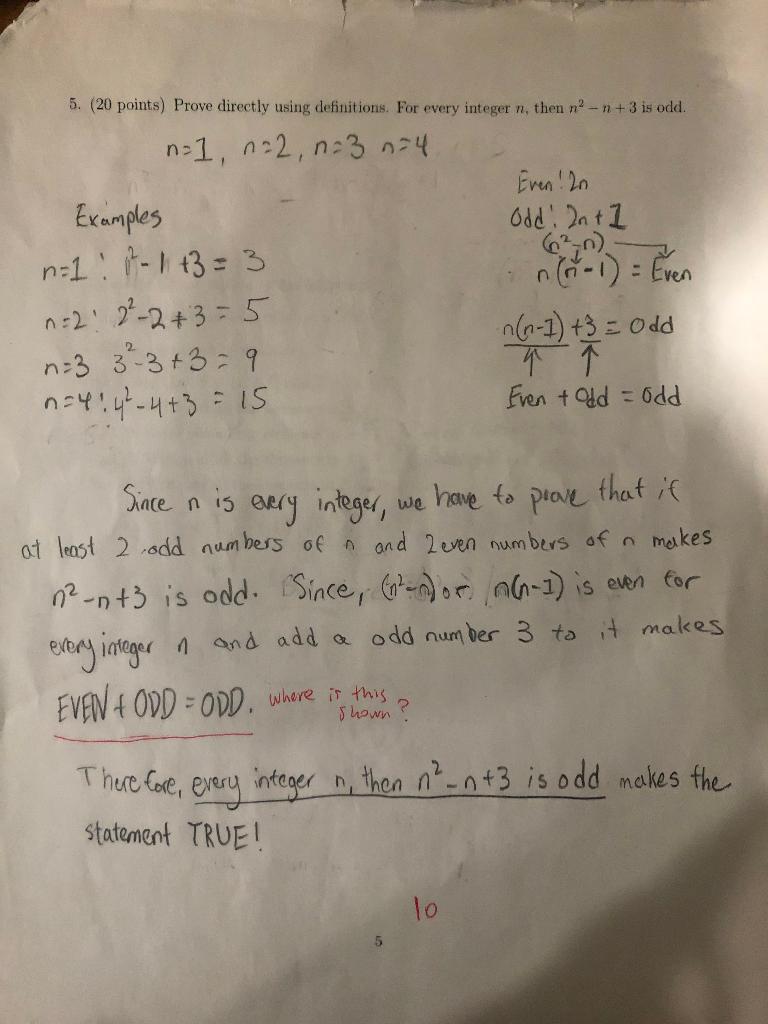 5. (20 points) Prove directly using definitions. For every integer n, then n² − n + 3 is odd.
n=1, n=2, n=3 n=4
Examples
n=1: 1²-1+3 = 3
n=2: 2²-2+3 = 5
n=3 3²-3+3 = 9
n=4: 4²-4+3 = 15
Even: 2n
Odd: 2n+1
(n²-n)
n(n-1) = Even
n(n-1)+3 = Odd
Even + Odd = Odd
Since n is every integer, we have to prove that if
at least 2 odd numbers of n and 2 even numbers of n makes
n²-n+3 is odd. Since, (n²-n) or n(n-1) is even for
every integer n and add a odd number 3 to it makes
EVEN + ODD = ODD. where is this
shown?
Therefore, every integer n, then n²-n+3 is odd makes the
statement TRUE!
10
5